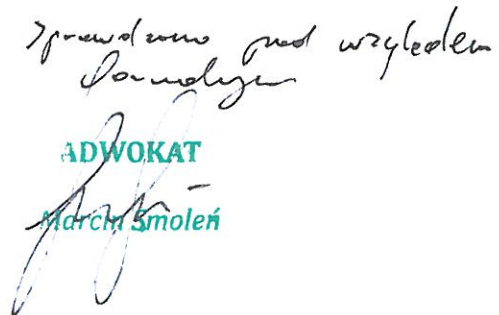 Sprawdzono pod względem
formalnym
ADWOKAT
Marcin Smoleń